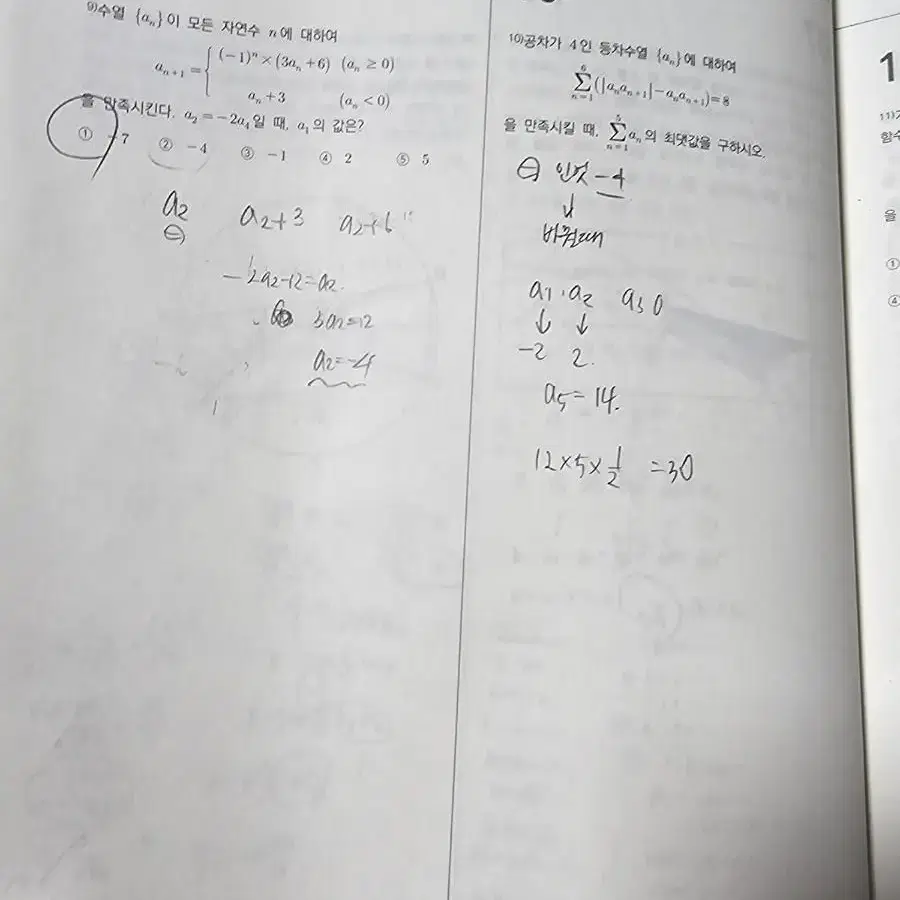 9)수열 {aₙ}이 모든 자연수 n에 대하여
aₙ₊₁ = { (-1)ⁿ × (3aₙ+6) (aₙ ≥ 0)
aₙ+3 (aₙ < 0)
을 만족시킨다. a₂ = -2a₄일 때, a₁의 값은?
① -7 ② -4 ③ -1 ④ 2 ⑤ 5
a₂ a₂+3 a₂+6
⊖
-2a₂-12=a₂.
3a₂=12
a₂=-4
10)공차가 4인 등차수열 {aₙ}에 대하여
6
∑(|aₙaₙ₊₁|-aₙaₙ₊₁)=8
n=1
을 만족시킬 때, ∑⁵ₙ₌₁ aₙ의 최댓값을 구하시오.
⊖ 인것 -4
↓
바뀔때
a₁, a₂ a₃ 0
↓ ↓
-2 2.
a₅=14.
12×5×1/2 =30
1
11)
함수
을
①
④